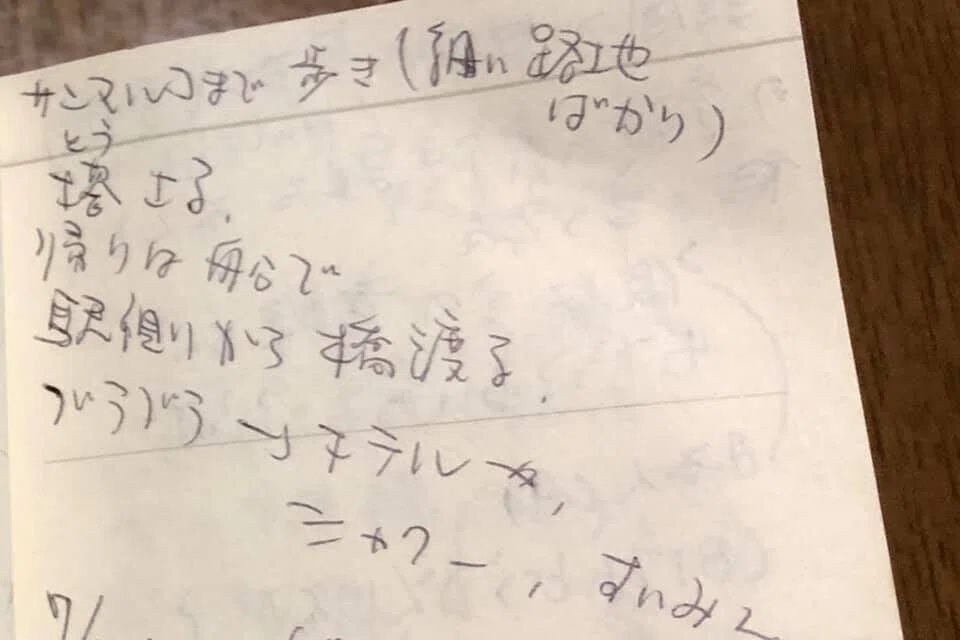 サンマルコまで歩き(細い路地
ばかり)
とう
塔上る.
帰りは舟公で
駅側から橋渡る.
ぶらぶら ホテルへ,
シャワー, すいみん
7/